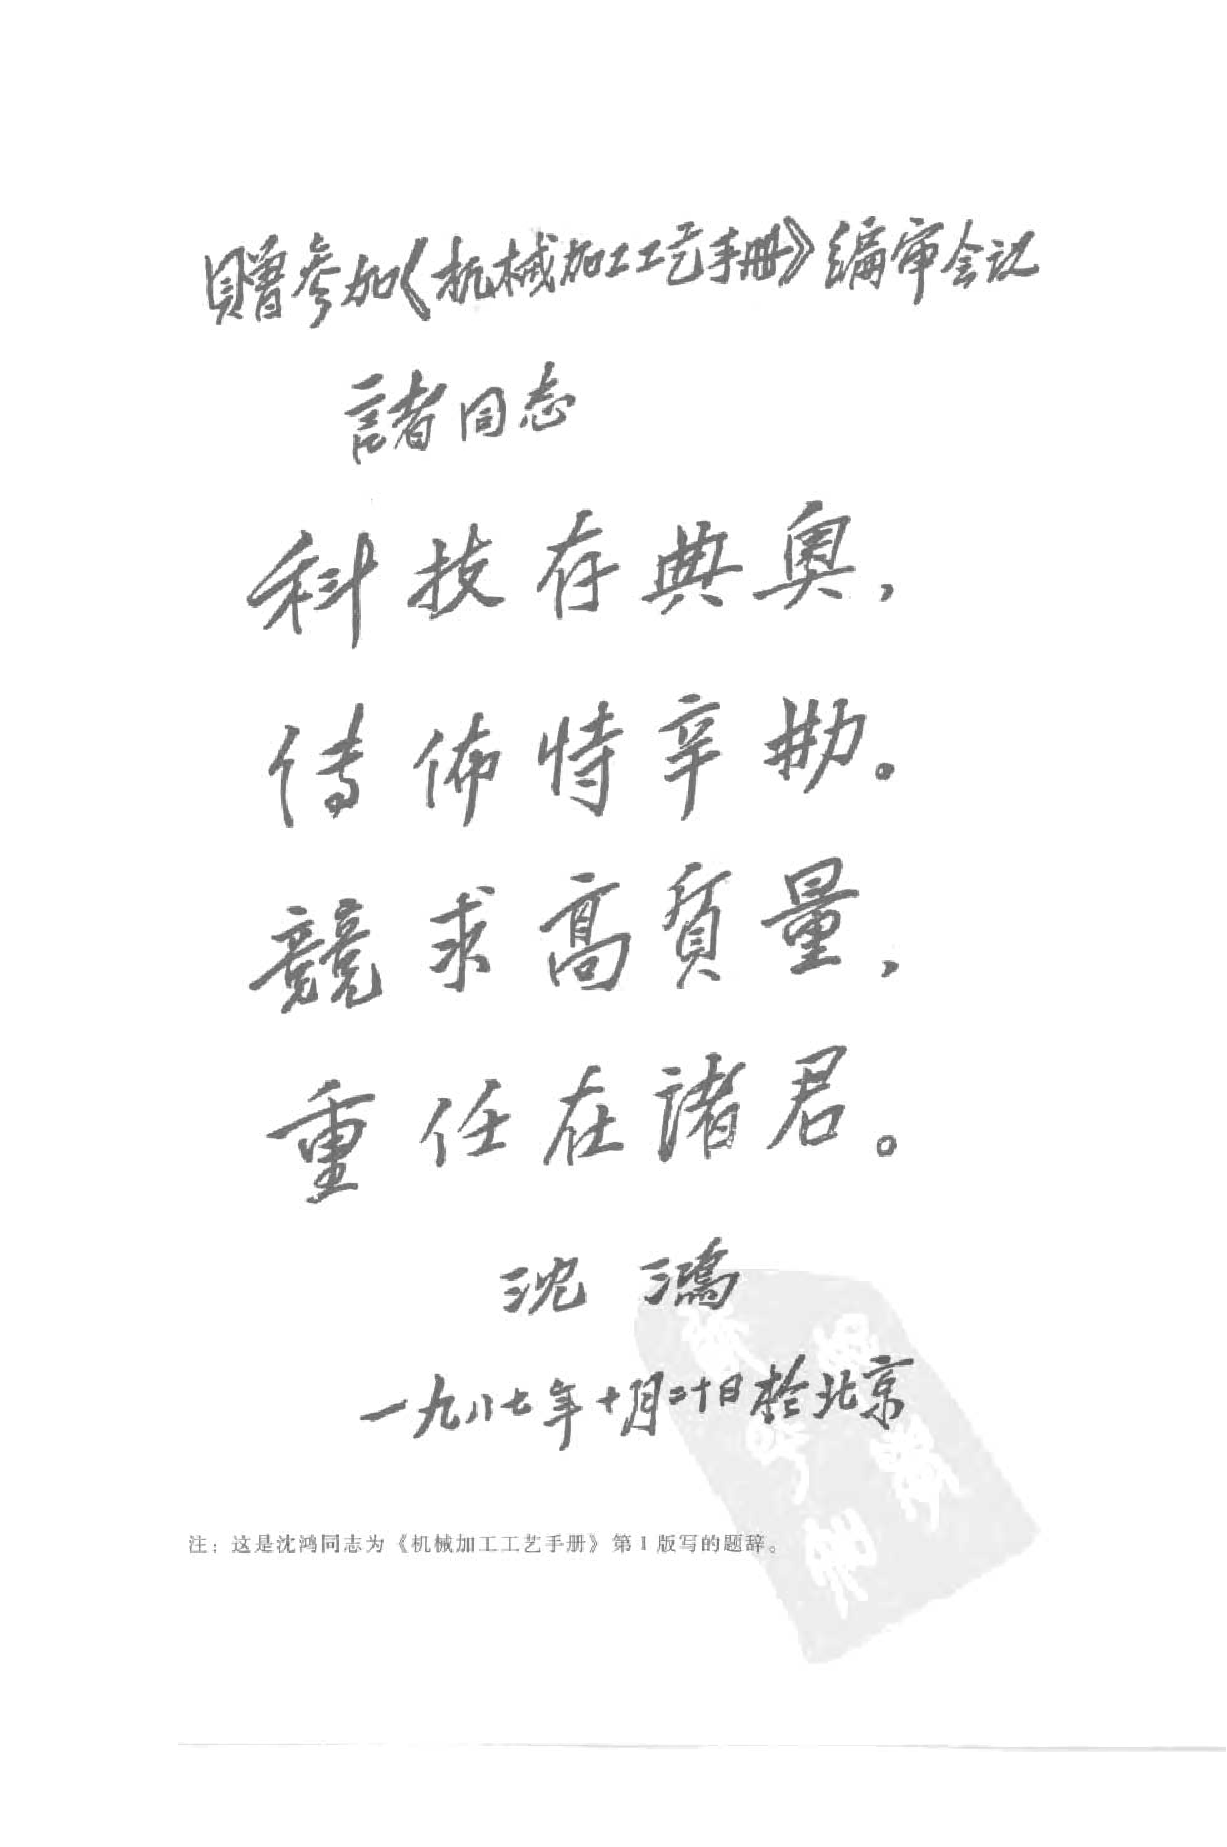 贈参加《机械加工工艺手册》编审会议
諸同志
科技存典奥，
传佈恃辛勤。
競求高質量，
重任在諸君。
沈鸿
一九八七年十月二十日於北京
注：这是沈鸿同志为《机械加工工艺手册》第1版写的题辞。